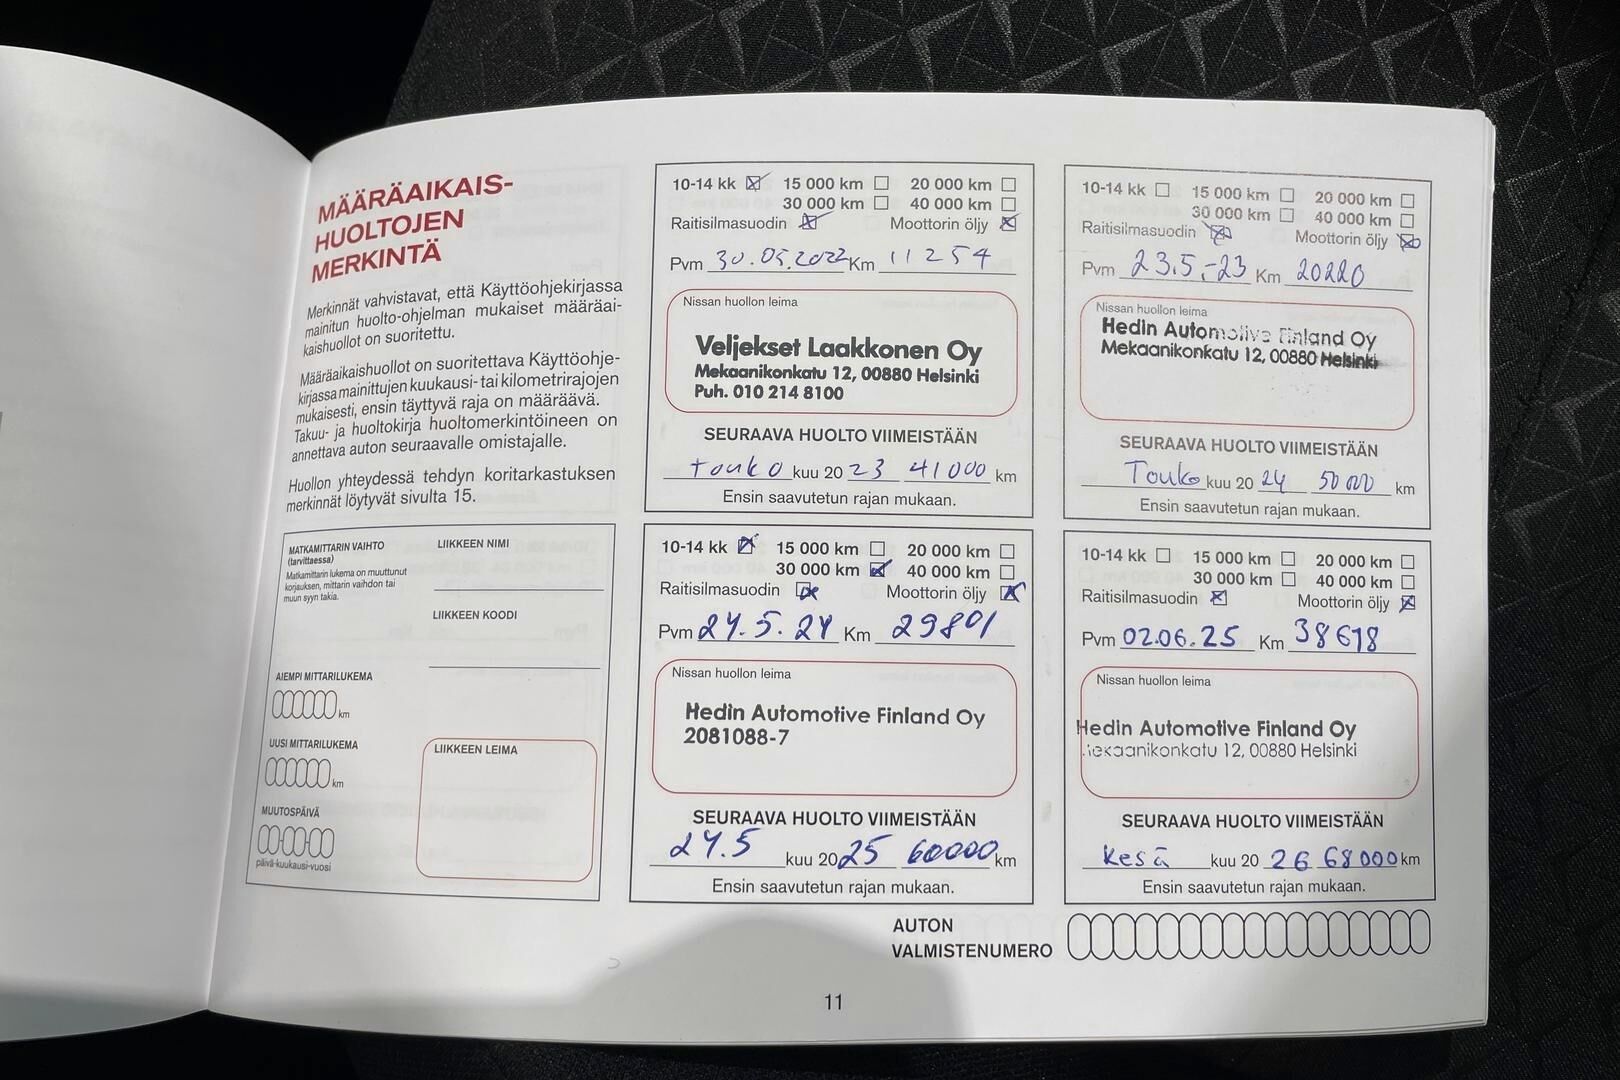 MÄÄRÄAIKAIS-
HUOLTOJEN
MERKINTÄ
Merkinnät vahvistavat, että Käyttöohjekirjassa
mainitun huolto-ohjelman mukaiset määräai-
kaishuollot on suoritettu.
Määräaikaishuollot on suoritettava Käyttöohje-
kirjassa mainittujen kuukausi- tai kilometrirajojen
mukaisesti, ensin täyttyvä raja on määräävä.
Takuu- ja huoltokirja huoltomerkintöineen on
annettava auton seuraavalle omistajalle.
Huollon yhteydessä tehdyn koritarkastuksen
merkinnät löytyvät sivulta 15.
MATKAMITTARIN VAIHTO
(tarvittaessa)
Matkamittarin lukema on muuttunut
korjauksen, mittarin vaihdon tai
muun syyn takia.
LIIKKEEN NIMI
LIIKKEEN KOODI
AIEMPI MITTARILUKEMA
km
UUSI MITTARILUKEMA
km
MUUTOSPÄIVÄ
päivä-kuukausi-vuosi
LIIKKEEN LEIMA
10-14 kk 15 000 km 20 000 km
30 000 km 40 000 km
Raitisilmasuodin Moottorin öljy
Pvm 30.05.2022 Km 11254
Nissan huollon leima
Veljekset Laakkonen Oy
Mekaanikonkatu 12, 00880 Helsinki
Puh. 010 214 8100
SEURAAVA HUOLTO VIIMEISTÄÄN
touko kuu 20 23 41000 km
Ensin saavutetun rajan mukaan.
10-14 kk 15 000 km 20 000 km
30 000 km 40 000 km
Raitisilmasuodin Moottorin öljy
Pvm 23.5.-23 Km 20220
Nissan huollon leima
Hedin Automotive Finland Oy
Mekaanikonkatu 12, 00880 Helsinki
SEURAAVA HUOLTO VIIMEISTÄÄN
Touko kuu 20 24 50 000 km
Ensin saavutetun rajan mukaan.
10-14 kk 15 000 km 20 000 km
30 000 km 40 000 km
Raitisilmasuodin Moottorin öljy
Pvm 24.5.24 Km 29801
Nissan huollon leima
Hedin Automotive Finland Oy
2081088-7
SEURAAVA HUOLTO VIIMEISTÄÄN
24.5 kuu 20 25 60000 km
Ensin saavutetun rajan mukaan.
10-14 kk 15 000 km 20 000 km
30 000 km 40 000 km
Raitisilmasuodin Moottorin öljy
Pvm 02.06.25 Km 38618
Nissan huollon leima
Hedin Automotive Finland Oy
Mekaanikonkatu 12, 00880 Helsinki
SEURAAVA HUOLTO VIIMEISTÄÄN
kesä kuu 20 26 68000 km
Ensin saavutetun rajan mukaan.
AUTON
VALMISTENUMERO
11